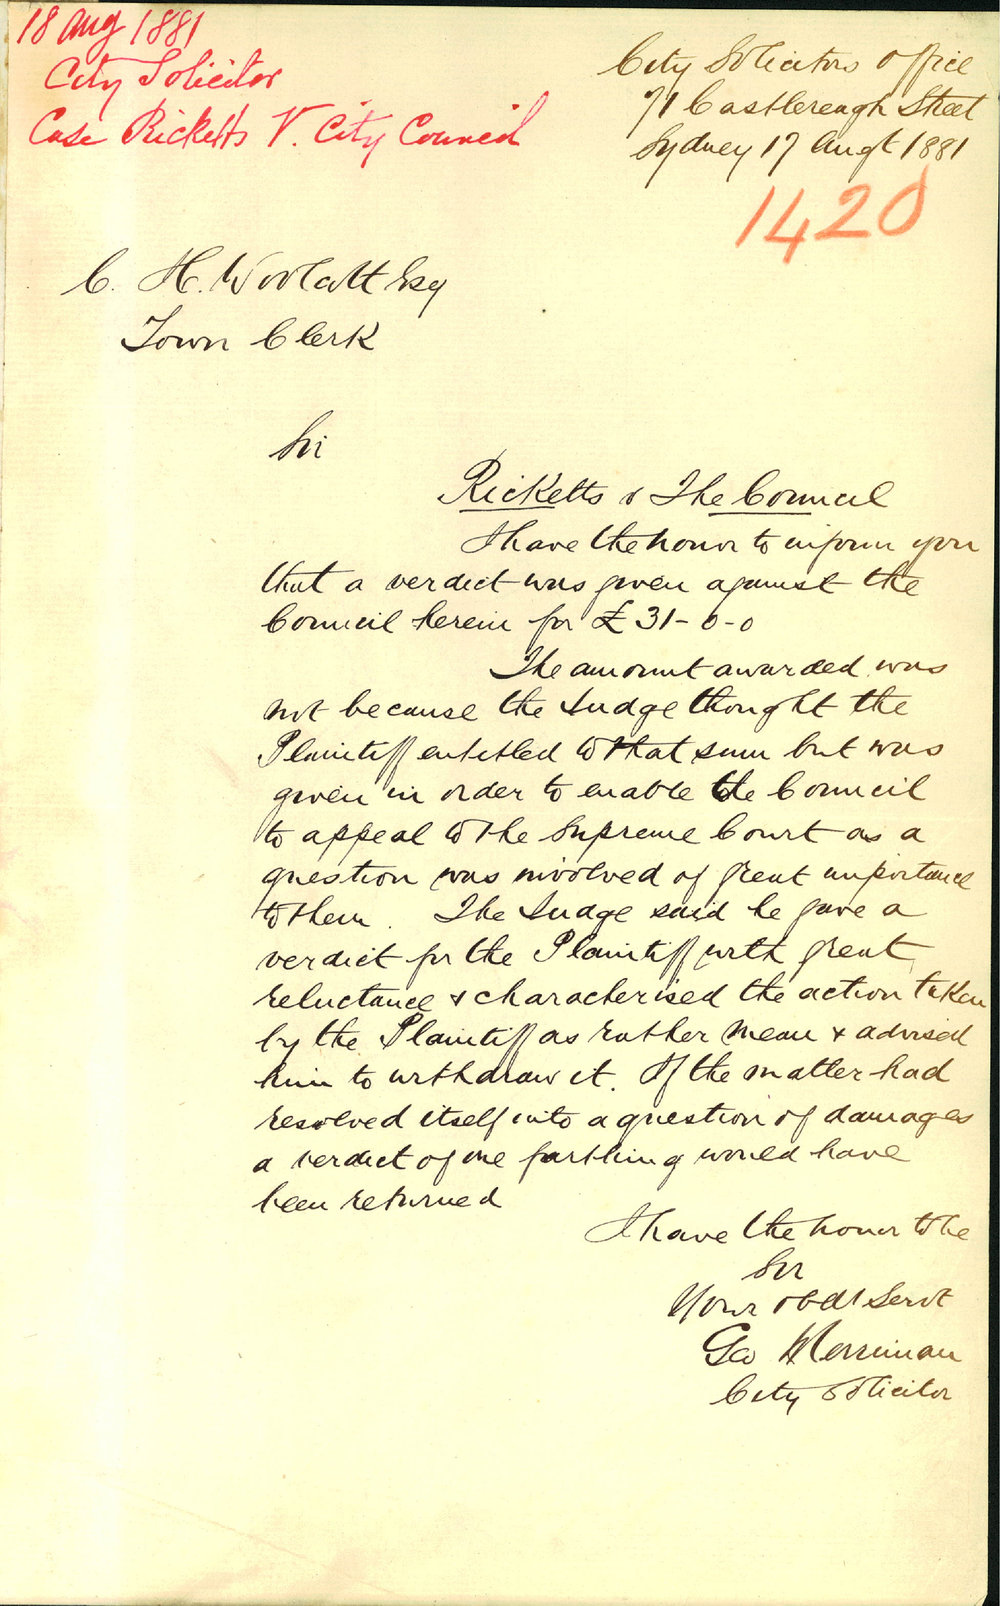 18 Aug 1881
City Solicitor
Case Ricketts V. City Council
City Solicitors Office
71 Castlereagh Street
Sydney 17 Augt 1881
1420
C. H. Woolcott Esq
Town Clerk
Sir
Ricketts v The Council
I have the honor to inform you
that a verdict was given against the
Council herein for £31-0-0
The amount awarded was
not because the Judge thought the
Plaintiff entitled to that sum but was
given in order to enable the Council
to appeal to the Supreme Court as a
question was involved of great importance
to them. The Judge said he gave a
verdict for the Plaintiff with great
reluctance & characterised the action taken
by the Plaintiff as rather mean & advised
him to withdraw it. If the matter had
resolved itself into a question of damages
a verdict of one farthing would have
been returned
I have the honor to be
Sir
Your obdt Servt
Geo Merriman
City Solicitor